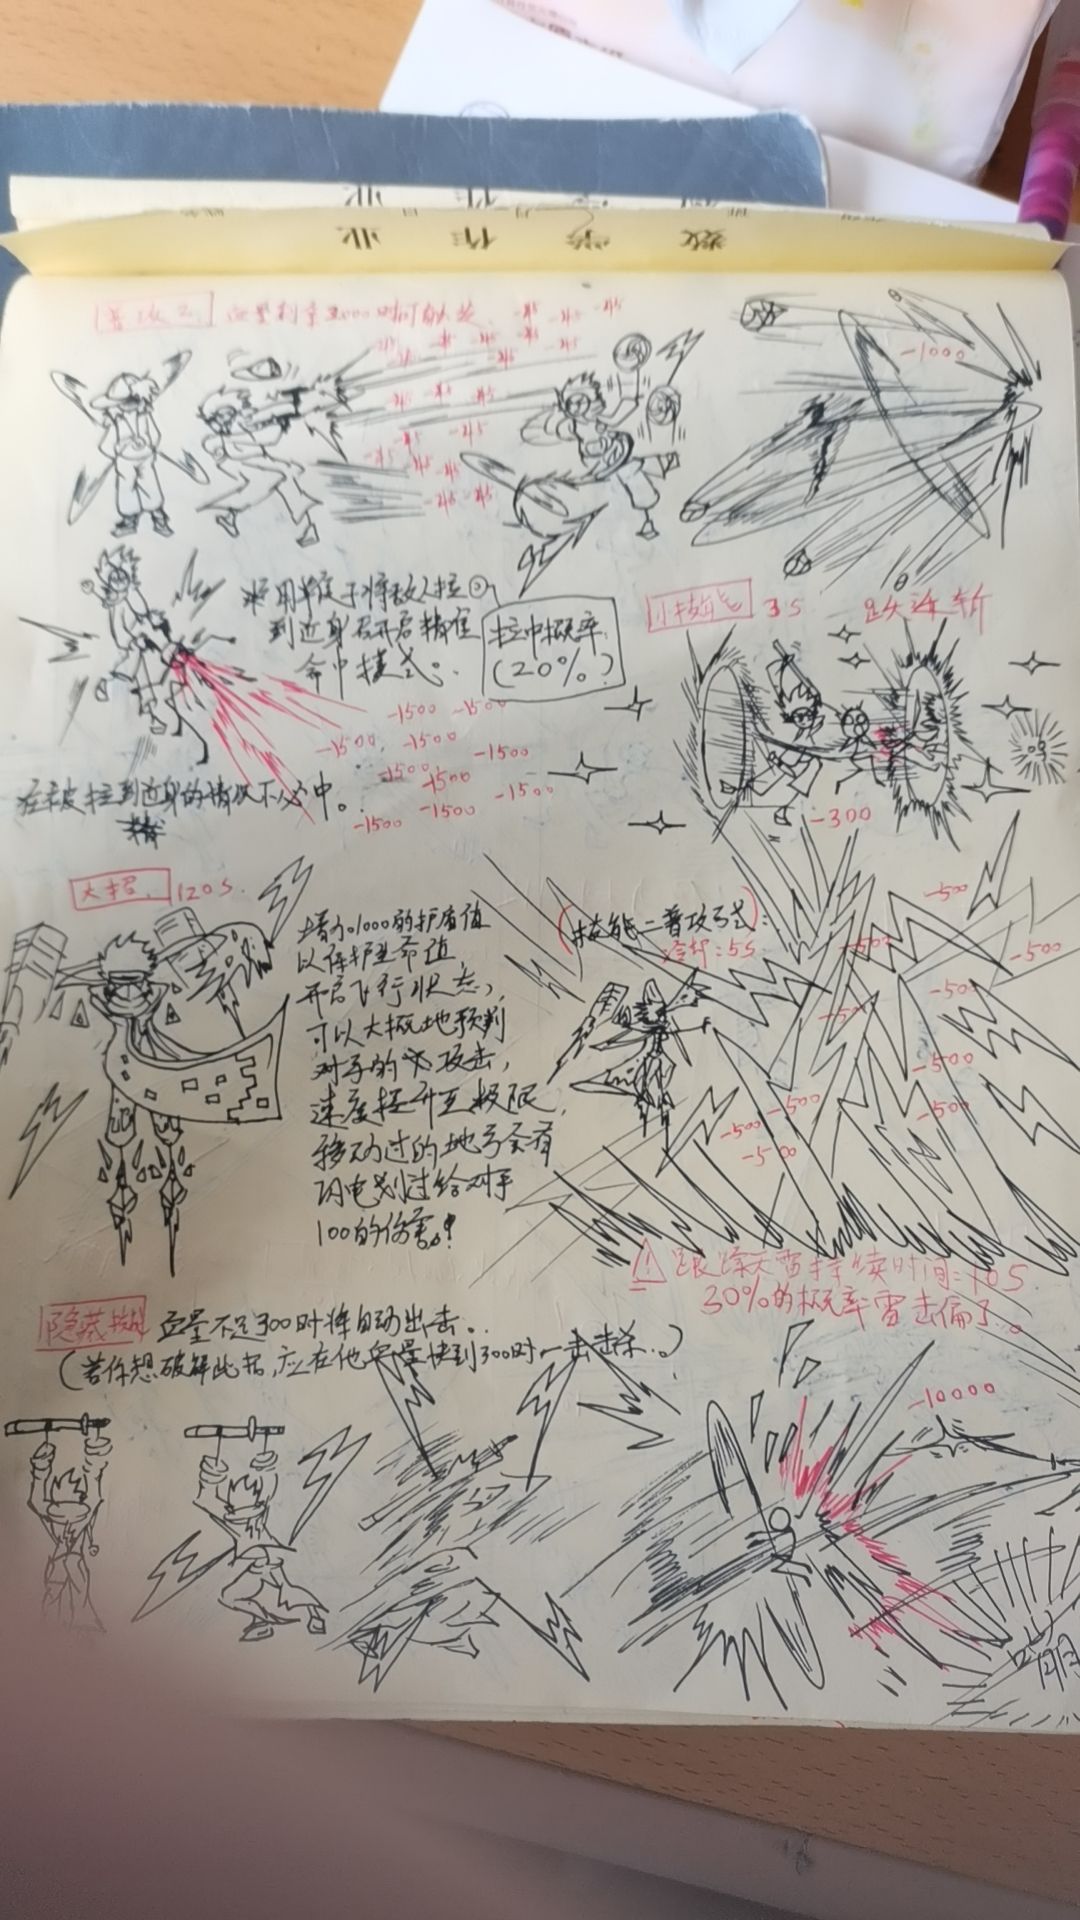 数学作业
普攻二 血量剩余3000时可触发
-45 -45 -45 -45
-45 -45 -45 -45 -45 -45
-45 -45 -45
-45 -45
-45 -45 -45
-45 -45
-1000
将用单 子将敌人拉
到近身后开启精准
命中模式。
拉中概率
(20%?)
-1500 -1500
-1500 -1500 -1500
-1500 -1500 -1500
-1500 -1500
在被拉到近身的情况下必中。
小技能 3S 跃 斩
-300
大招 120S.
增加1000的护盾值
以保护生命值,
开启飞行状态,
可以大概地预判
对手的 攻击,
速度提升至极限,
移动过的地方会有
闪电划过给对手
100的伤害!
(技能二普攻形式):
冷却:5S
-500
-500 -500
-500 -500
-500
-500 -500
-500
-500
⚠跟踪天雷持续时间:10S
30%的概率雷击偏了。
隐藏技 血量不足300时将自动出击。
(若你想破解此招,应在他血量快到300时一击击杀。)
-10000